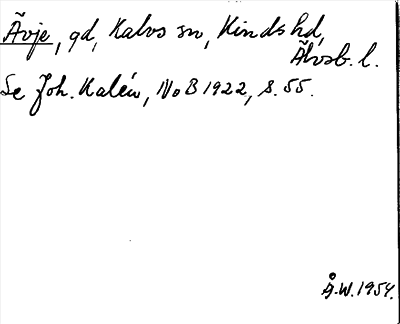 Ävje, gd, Kalvs sn, Kinds hd,
Älvsb. l.
Se Joh. Kalén, NoB 1922, s. 55.
Å.W. 1954.